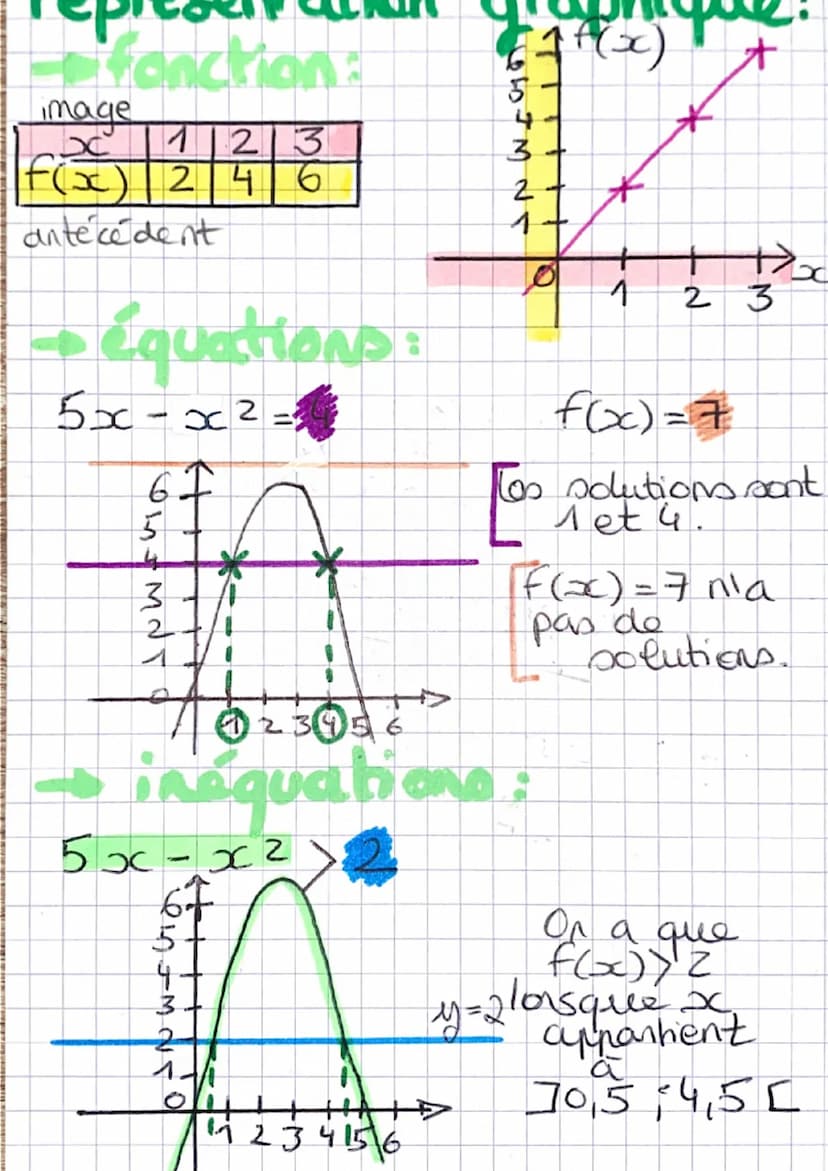 représentation graphique:
→ fonction:
image
x 1 2 3
f(x) 2 4 6
antécédent
f(x)
6
5
4
3
2
1
0 1 2 3 x
→ équations:
5x - x² = 4
f(x) = 7
6
5
4
3
2
1
0
1 2 3 4 5 6
Les solutions sont
1 et 4.
f(x) = 7 n'a
pas de
solutions.
→ inéquations:
5x - x² > 2
6
5
4
3
2
1
0
1 2 3 4 5 6
y=2
On a que
f(x) > 2
lorsque x
appartient
à
]0,5 ; 4,5[